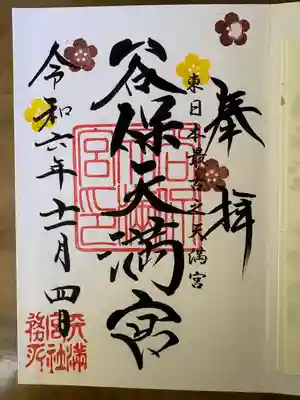 奉拝
東日本最古之天満宮
谷保天満宮
令和六年十一月四日
天満
宮社
務所